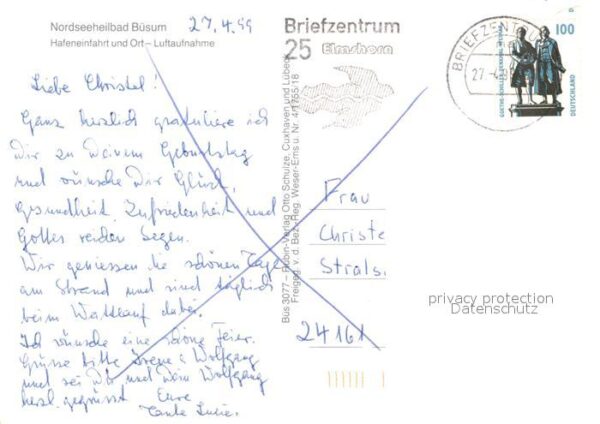 Nordseeheilbad Büsum
27.4.99
Hafeneinfahrt und Ort – Luftaufnahme
Liebe Christel!
Ganz herzlich gratuliere ich
Dir zu Deinem Geburtstag
und wünsche Dir Glück,
Gesundheit, Zufriedenheit und
Gottes reichen Segen.
Wir genießen die schönen Tage
am Strand und sind täglich
beim Wattlauf dabei.
Ich wünsche eine schöne Feier.
Grüsse bitte Irene & Wolfgang
und sei Du und Dein Wolfgang
herzl. gegrüsst Eure
Tante
Büs 3077 – Rubin-Verlag Otto Schulze, Cuxhaven und Lübeck
Freigeg. v. d. Bez.-Reg. Weser-Ems u. Nr. 4/1765/18
Briefzentrum
25 Elmshorn
BRIEFZENTRU
27
100
DEUTSCHLAND
Frau
Christe
Strals.
24161
privacy protection
Datenschutz